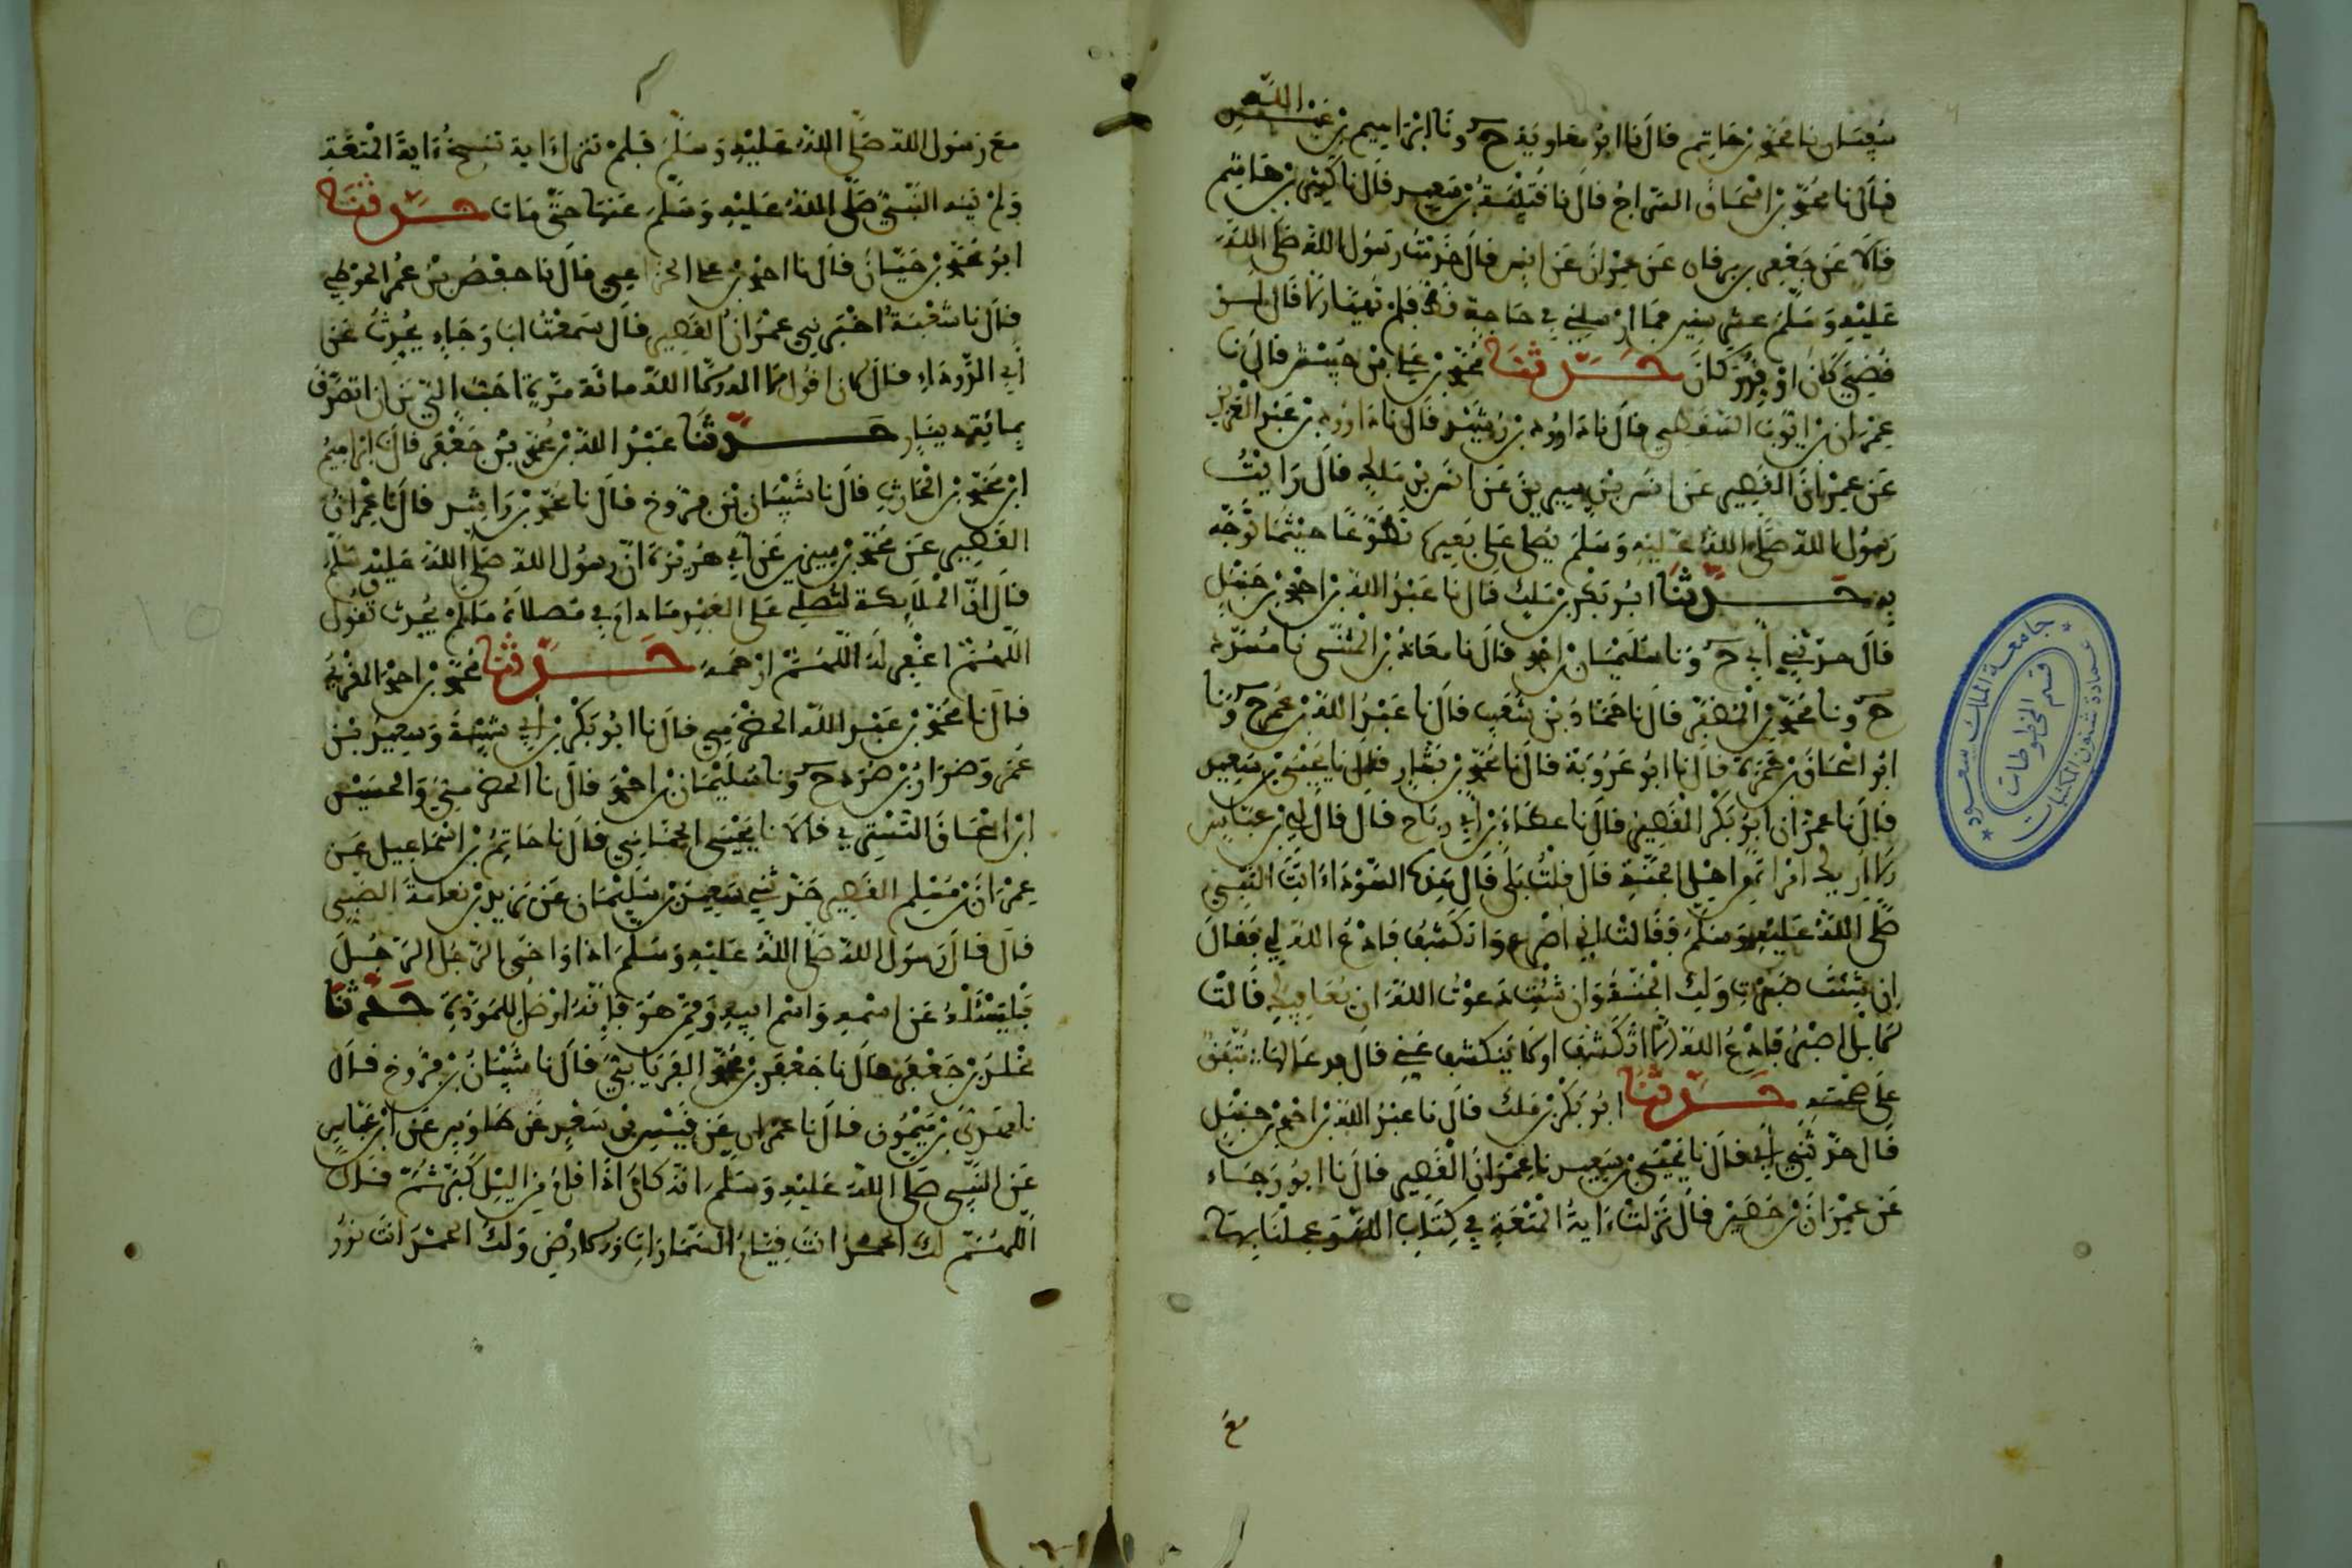 سفيان نا محمد بن حاتم قال نا ابو معاوية ح ونا ابراهيم بن عبد الله
قال نا محمد بن اسحاق السراج قال نا قتيبة بن سعيد قال نا كثير بن هشام
قالا عن جعفر بن برقان عن عمران عن انس قال خدمت رسول الله صلى الله
عليه وسلم عشر سنين فما ارسلني في حاجة قط فلم تهيا الا قال لو
قضي كان او قدر كان حدثنا محمد بن علي بن حبيش قال نا
عمران بن ايوب السقطي قال نا داوود بن رشيد قال نا داوود بن عبد العزيز
عن عمران القصير عن انس بن سيرين عن انس بن ملك قال رايت
رسول الله صلى الله عليه وسلم يصلي على بعير تطوعا حيثما توجه
به حدثنا ابو بكر بن ملك قال نا عبد الله بن احمد بن حنبل
قال حدثني ابي ح ونا سليمان بن احمد قال نا معاذ بن المثنى نا مسدد
ح ونا محمد بن المظفر قال نا حماد بن شعيب قال نا عبد الله بن عمر ح ونا
ابو اسحاق بن حمزة قال نا ابو عروبة قال نا محمد بن بشار قالوا نا يحيى بن سعيد
قال نا عمران ابو بكر القصير قال نا عطاء بن ابي رباح قال قال لي ابن عباس
الا اريك امراة من اهل الجنة قال قلت بلى قال هذه السوداء اتت النبي
صلى الله عليه وسلم فقالت اني اصرع واتكشف فادع الله لي فقال
ان شئت صبرت ولك الجنة وان شئت دعوت الله ان يعافيك قالت
لا بل اصبر فادع الله الا اتكشف او لا ينكشف عني قال فدعا لها متفق
على صحته حدثنا ابو بكر بن ملك قال نا عبد الله بن احمد بن حنبل
قال حدثني ابي قال نا يحيى بن سعيد نا عمران القصير قال نا ابو رجاء
عن عمران بن حصين قال نزلت ءاية المتعة في كتاب الله وعملنا بها
مع
مع رسول الله صلى الله عليه وسلم فلم تنزل ءاية تنسخ ءاية المتعة
ولم ينه النبي صلى الله عليه وسلم عنها حتى مات حدثنا
ابو محمد بن حيان قال نا احمد بن علي الخزاعي قال نا حفص بن عمر الحوضي
قال نا شعبة اخبرني عمران القصير قال سمعت ابا رجاء يحدث عن
ابي الدرداء قال لان اقول الله اكبر مائة مرة احب الي من ان اتصدق
بمائة دينار حدثنا عبد الله بن محمد بن جعفر قال نا ابراهيم
ابن محمد بن الحارث قال نا شيبان بن فروخ قال نا محمد بن راشد قال نا عمران
القصير عن محمد بن سيرين عن ابي هريرة ان رسول الله صلى الله عليه وسلم
قال ان الملائكة لتصلي على العبد ما دام في مصلاه ما لم يحدث تقول
اللهم اغفر له اللهم ارحمه حدثنا محمد بن احمد المقرئ
قال نا محمد بن عبد الله الحضرمي قال نا ابو بكر بن ابي شيبة وسعيد بن
عمر وضرار بن صرد ح ونا سليمان بن احمد قال نا الحضرمي والحسين
ابن اسحاق التستري قالا نا يحيى الحماني قال نا حاتم بن اسماعيل عن
عمران بن مسلم القصير حدثني سعيد بن سليمان عن يزيد بن نعامة الضبي
قال قال رسول الله صلى الله عليه وسلم اذا واخى الرجل الرجل
فليسئله عن اسمه واسم ابيه وممن هو فانه اوصل للمودة حدثنا
مخلد بن جعفر قال نا جعفر بن محمد الفريابي قال نا شيبان بن فروخ قال
نا مهدي بن ميمون قال نا عمران عن قيس بن سعد عن طاوس عن ابن عباس
عن النبي صلى الله عليه وسلم انه كان اذا قام من اليل كبر ثم قال
اللهم لك الحمد انت قيام السماوات والارض ولك الحمد انت نور
جامعة الملك سعود
عمادة شئون المكتبات
قسم المخطوطات